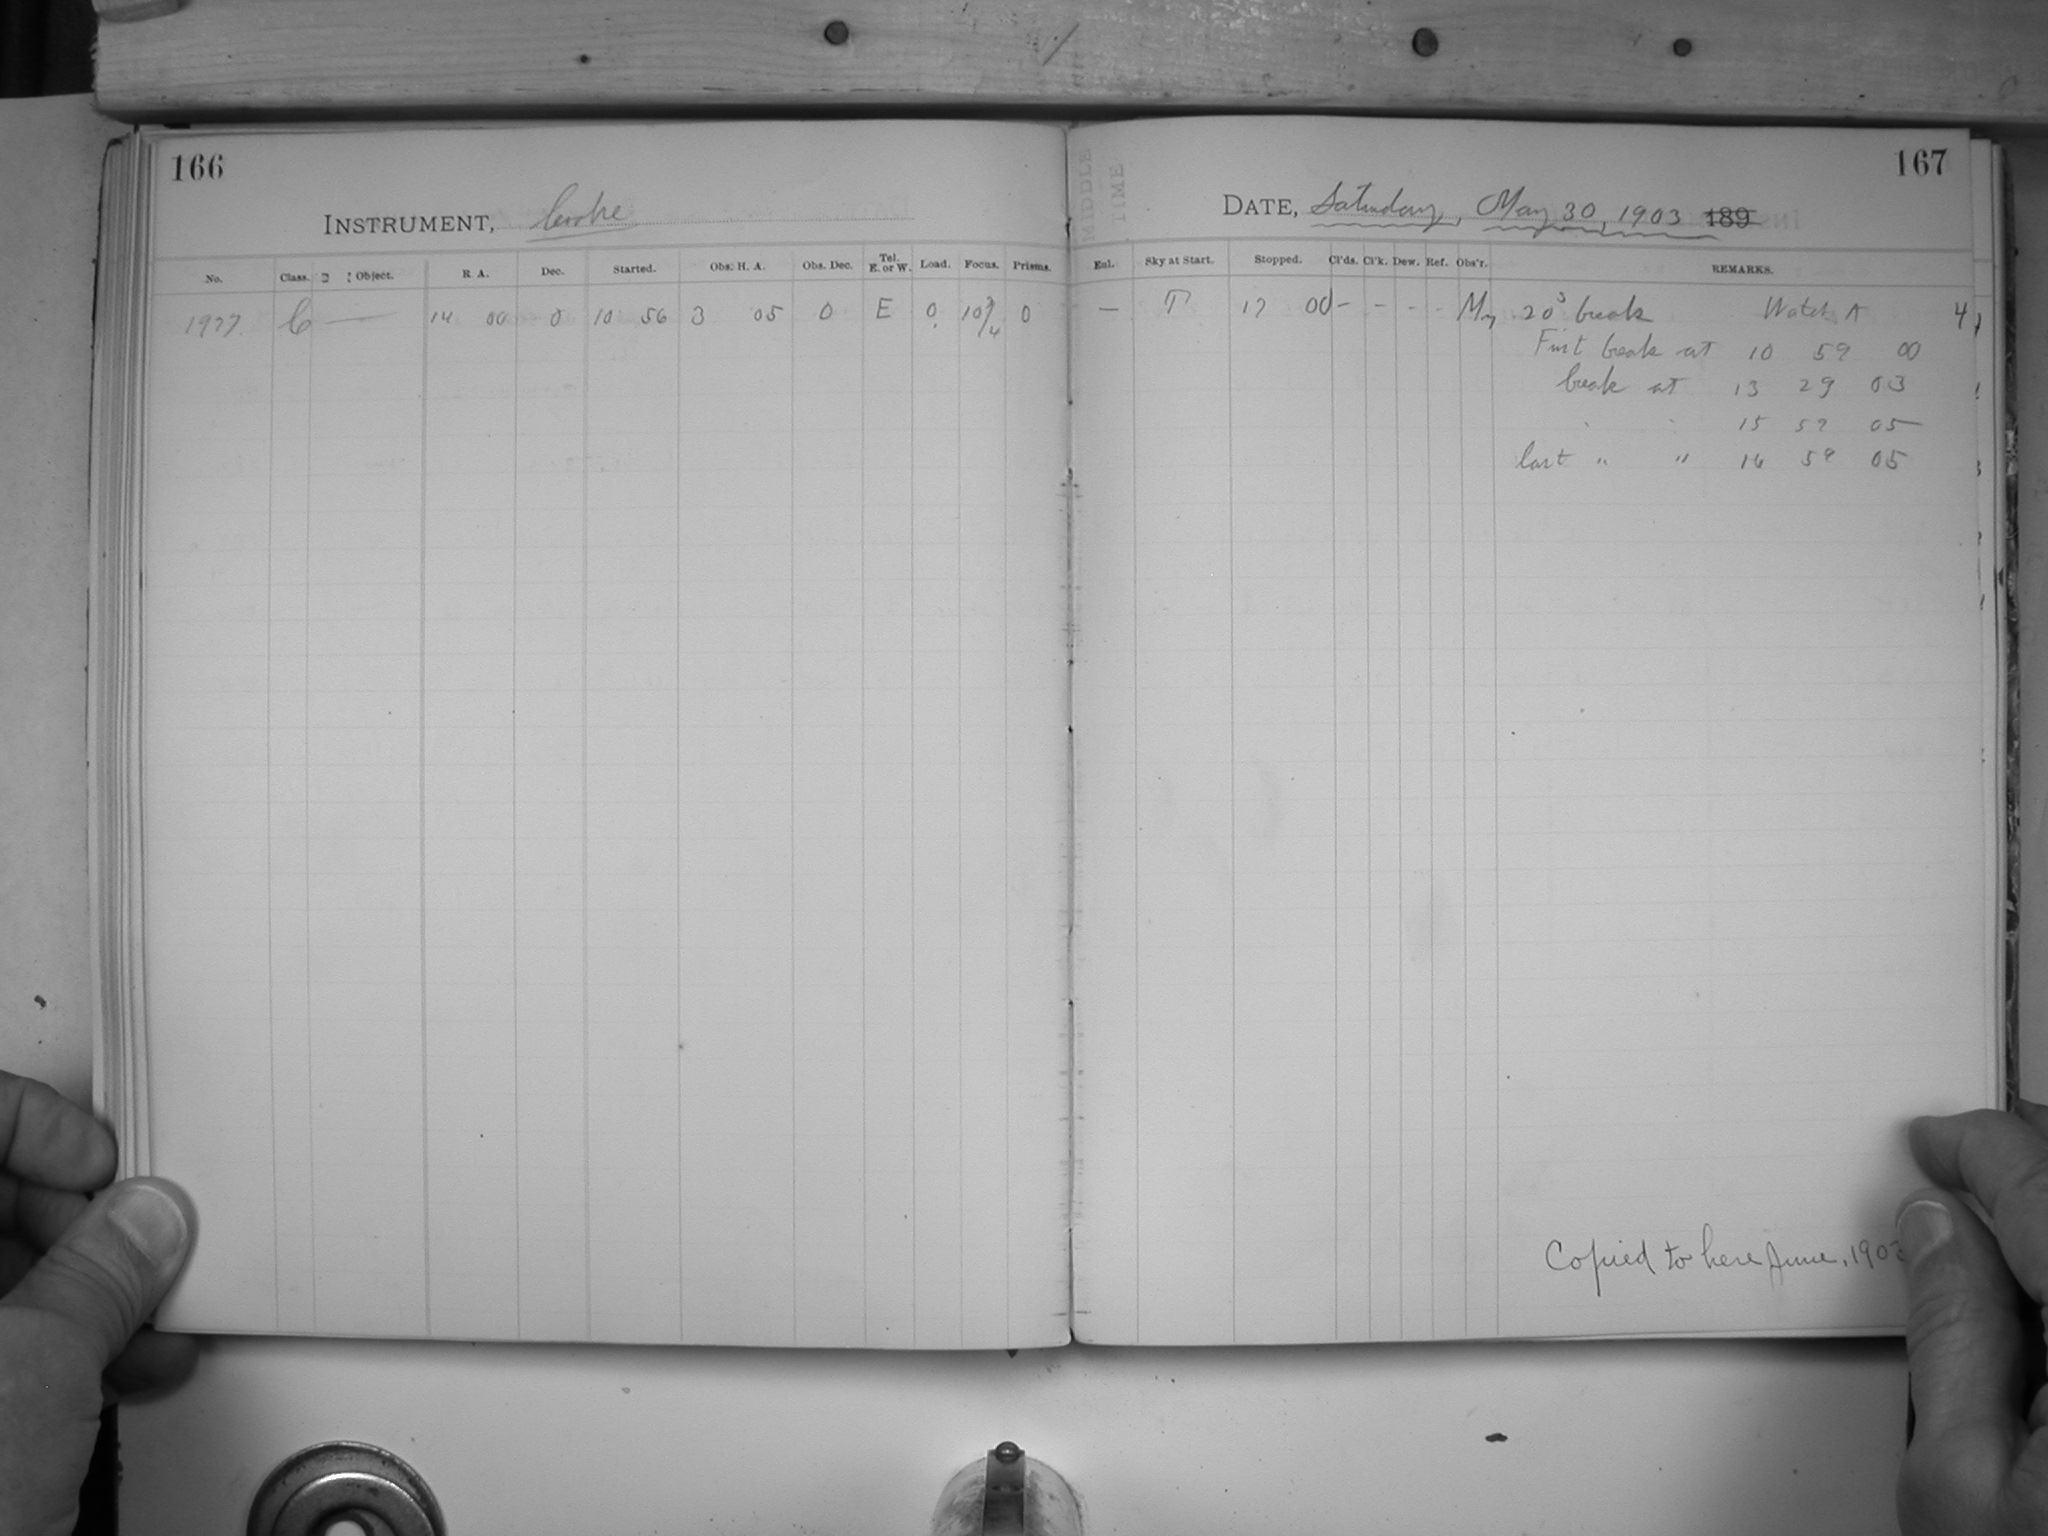 166
INSTRUMENT, Cooke
No. Class. Object. R. A. Dec. Started. Obs. H. A. Obs. Dec. Tel. E. or W. Load. Focus. Prisms.
1977. C — 14 00 0 10 56 3 05 0 E 0 10 3/4 0
167
DATE, Saturday, May 30, 1903 189
Enl. Sky at Start. Stopped. Cl'ds. Cl'k. Dew. Ref. Obs'r. REMARKS.
— T 17 00 - - - - My 20s break Watch A 4
First break at 10 59 00
break at 13 29 03
15 59 05
last " " 16 59 05
Copied to here June, 1903
MIDDLE
TIME